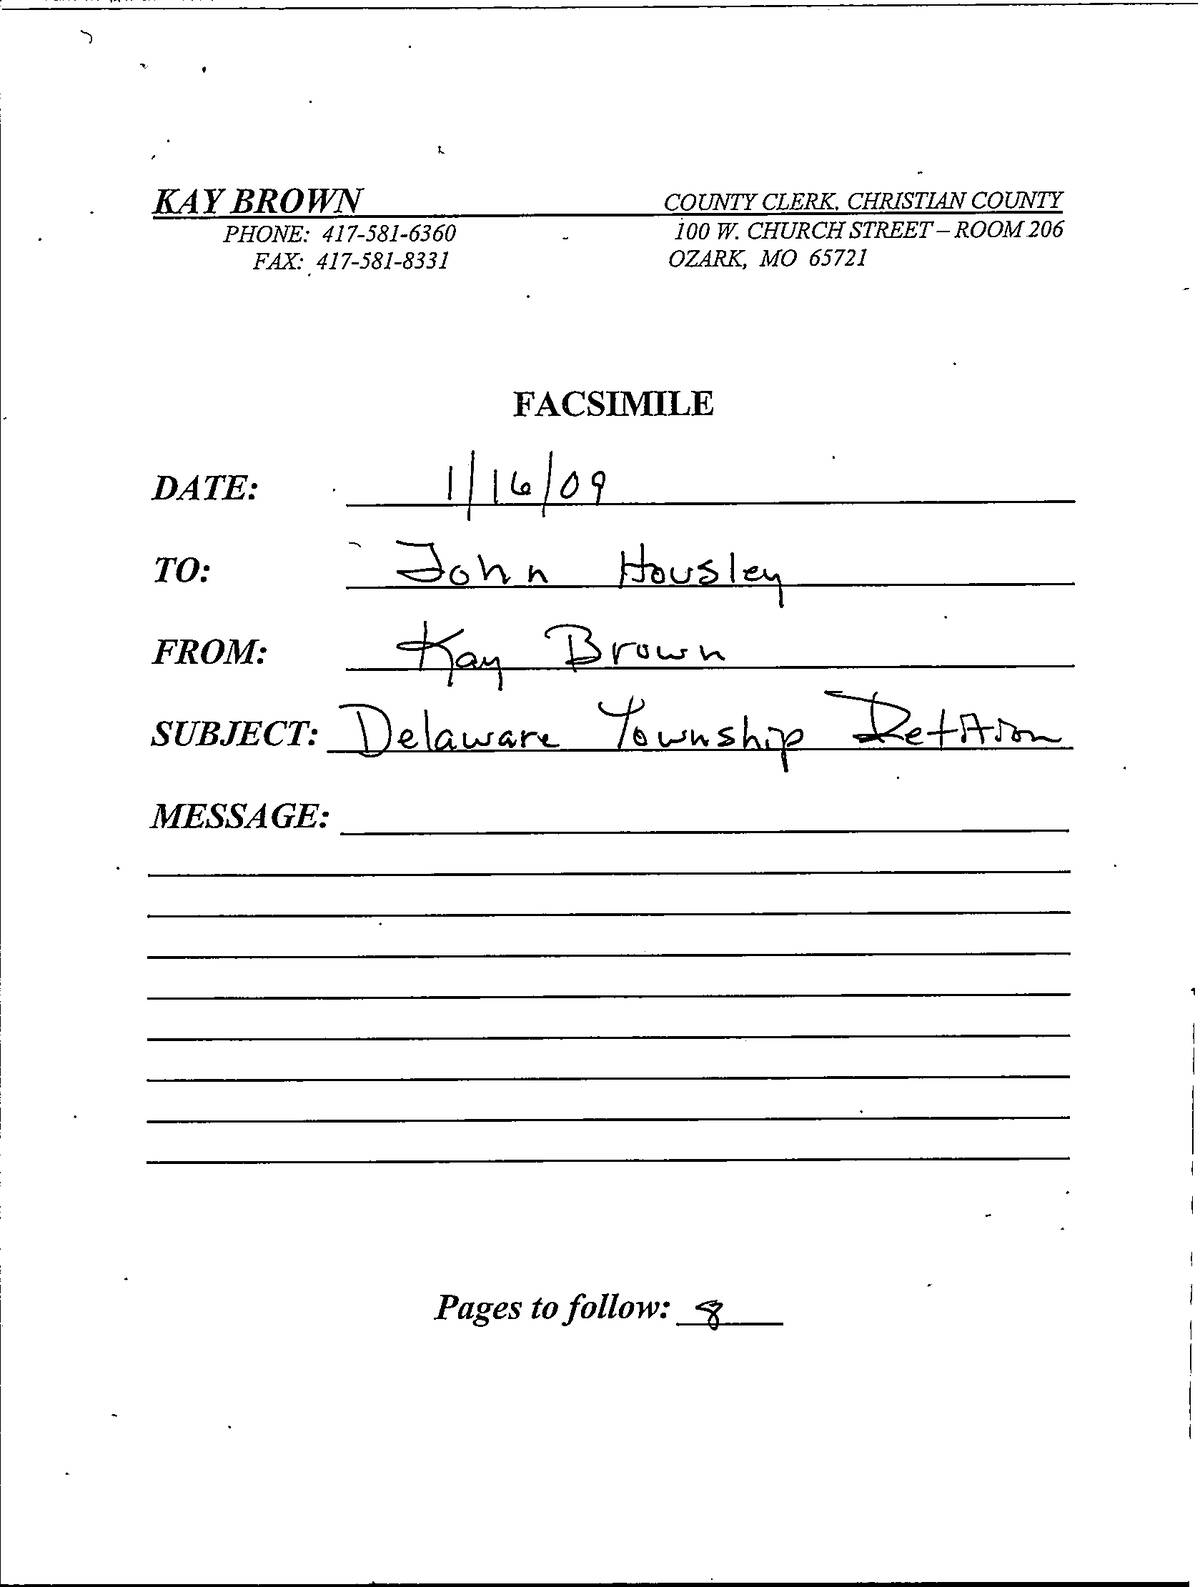 KAY BROWN COUNTY CLERK, CHRISTIAN COUNTY
PHONE: 417-581-6360 100 W. CHURCH STREET – ROOM 206
FAX: 417-581-8331 OZARK, MO 65721
FACSIMILE
DATE: 1/16/09
TO: John Housley
FROM: Kay Brown
SUBJECT: Delaware Township Petition
MESSAGE:
Pages to follow: 8